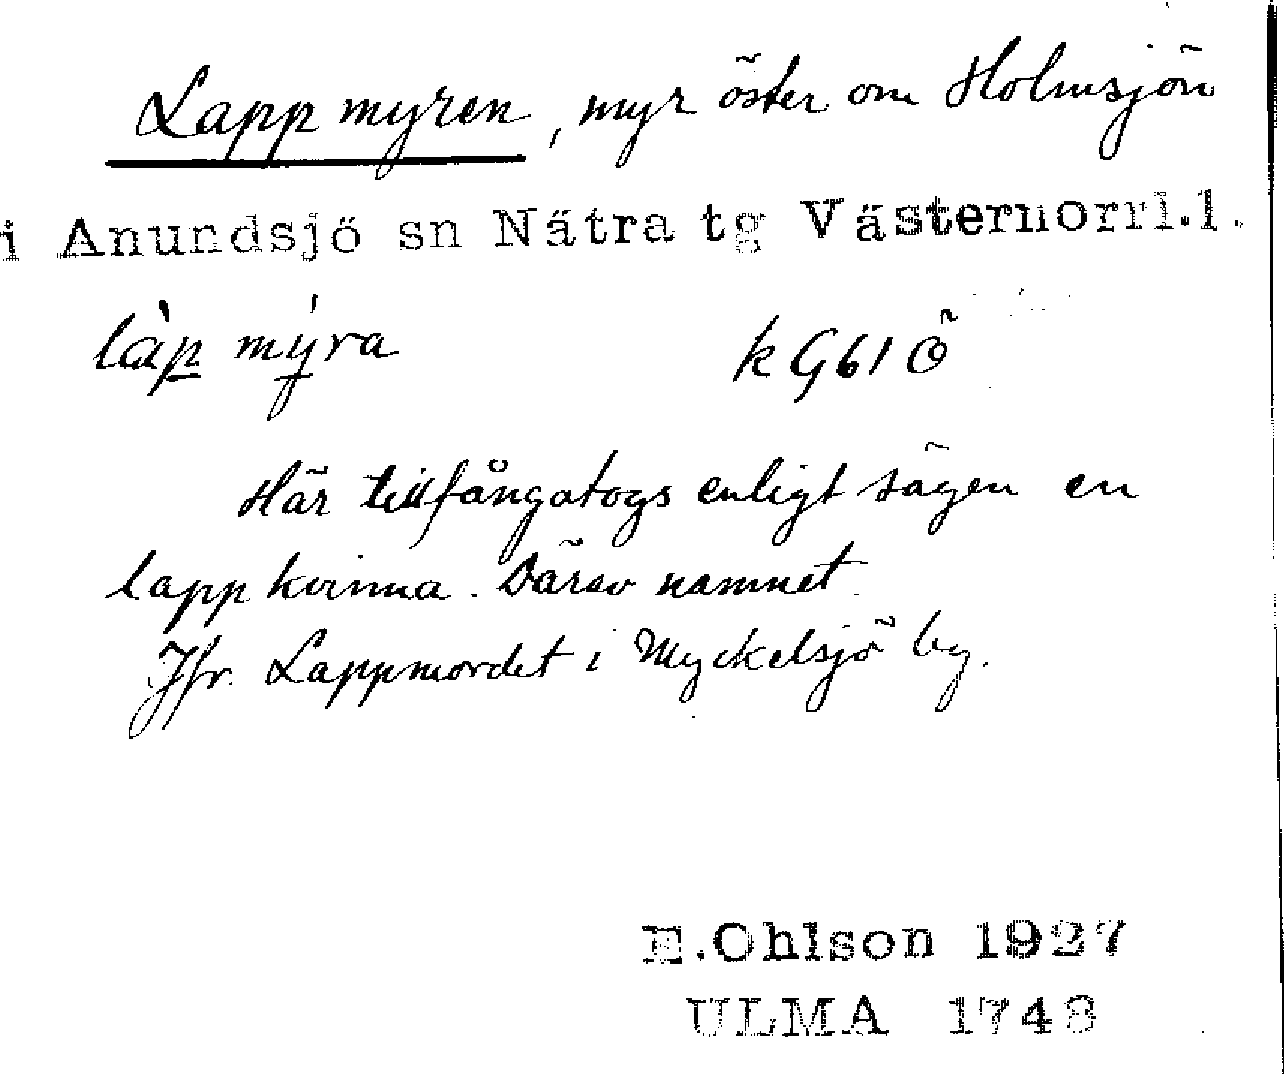 Lappmyren, myr öster om Holmsjön
i Anundsjö sn Nätra tg Västernorrl.l.
làp mýra kG61Ö
Här tillfångatogs enligt sägen en
lappkvinna. Därav namnet.
Jfr. Lappmordet i Myckelsjö by.
E.Ohlson 1927
ULMA 1748